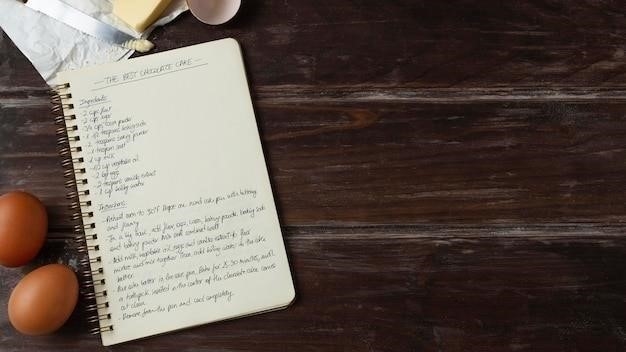 - THE BEST CHOCOLATE CAKE -
Ingredients:
2 cups flour
2 cups sugar
3/4 cups cocoa powder
- 1 1/2 teaspoons baking soda
- 2 teaspoons baking powder
- 1 teaspoon salt
- 1 cup milk
- 1/2 cup vegetable oil
- 2 eggs
- 2 teaspoons vanilla extract
- 1 cup boiling water
Instructions:
- Preheat oven to 350°F. Prepare one round cake pan with buttering
and flouring
- In a big bowl, add flour, sugar, cocoa, baking powder, baking soda
and baking powder. Mix until combined well
- Add milk, vegetable oil, eggs and vanilla extract to flour
mixture and mix together. Then, add boiling water to the cake
batter.
- Pour cake batter to the cake pan. Bake for 25-30 minutes, until
a toothpick inserted in the center of the chocolate cake comes
out clean.
- Remove from the pan and cool completely.